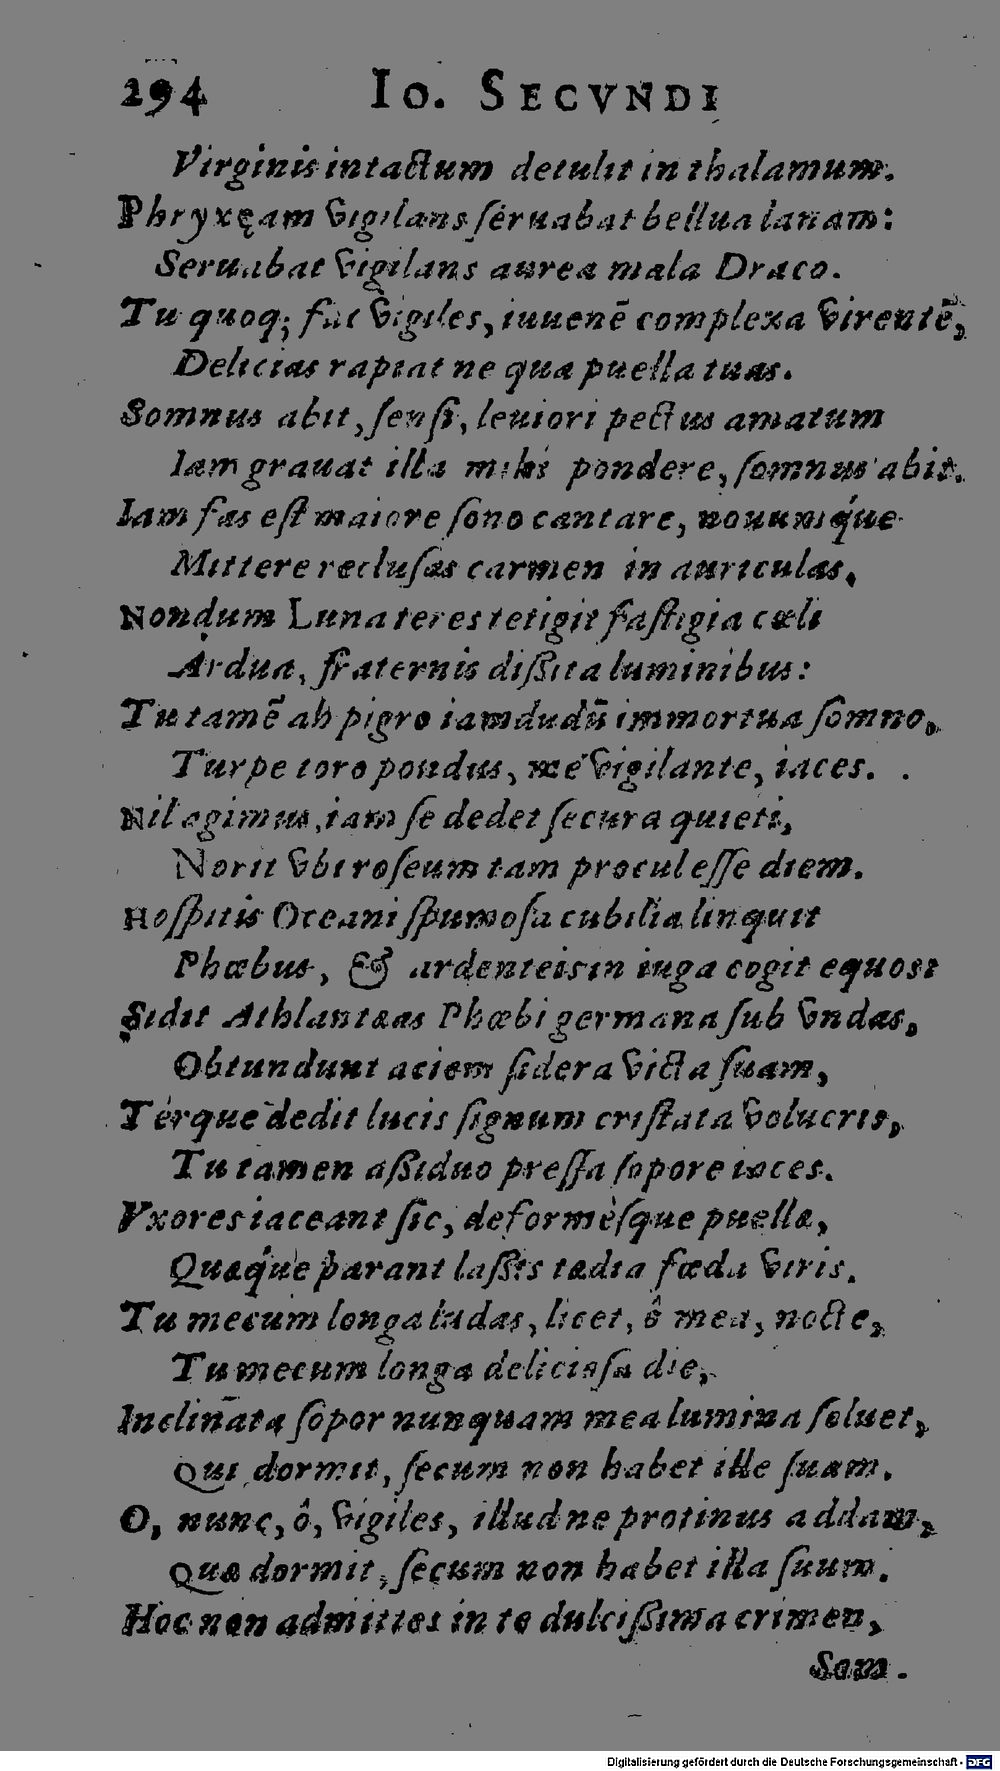 294 Io. SECVNDI
Virginis intactum detulit in thalamum.
Phryxęam vigilans ſeruabat bellua lanam:
Seruabat vigilans aurea mala Draco.
Tu quoq; fac vigiles, iuuenē complexa virentē,
Delicias rapiat ne qua puella tuas.
Somnus abit, ſenſi, leuiori pectus amatum
Iam grauat illa mihi pondere, ſomnus abit.
Iam fas eſt maiore ſono cantare, nouumq́ue
Mittere recluſas carmen in auriculas.
Nondum Luna teres tetigit faſtigia cœli
Ardua, fraternis diſsita luminibus:
Tu tamē ah pigro iamdudū immortua ſomno,
Turpe toro pondus, me vigilante, iaces.
Nil agimus, iam ſe dedet ſecura quieti,
Norit vbi roſeum tam procul eſſe diem.
Hoſpitis Oceani ſpumoſa cubilia linquit
Phœbus, & ardenteis in iuga cogit equos:
Sidit Athlantæas Phœbi germana ſub vndas,
Obtundunt aciem ſidera victa ſuam,
Térque dedit lucis ſignum criſtata volucris,
Tu tamen aſsiduo preſſa ſopore iaces.
Vxores iaceant ſic, deformèſque puellæ,
Quæq́ue parant laſsis tædia fœda viris.
Tu mecum longa ludas, licet, ô mea, nocte,
Tu mecum longa delicioſa die,
Inclinata ſopor nunquam mea lumina ſoluet,
Qui dormit, ſecum non habet ille ſuam.
O, nunc, ô, vigiles, illud ne protinus addam,
Quæ dormit, ſecum non habet illa ſuum.
Hoc non admittes in te dulciſsima crimen,
Som.
Digitalisierung gefördert durch die Deutsche Forschungsgemeinschaft - DFG